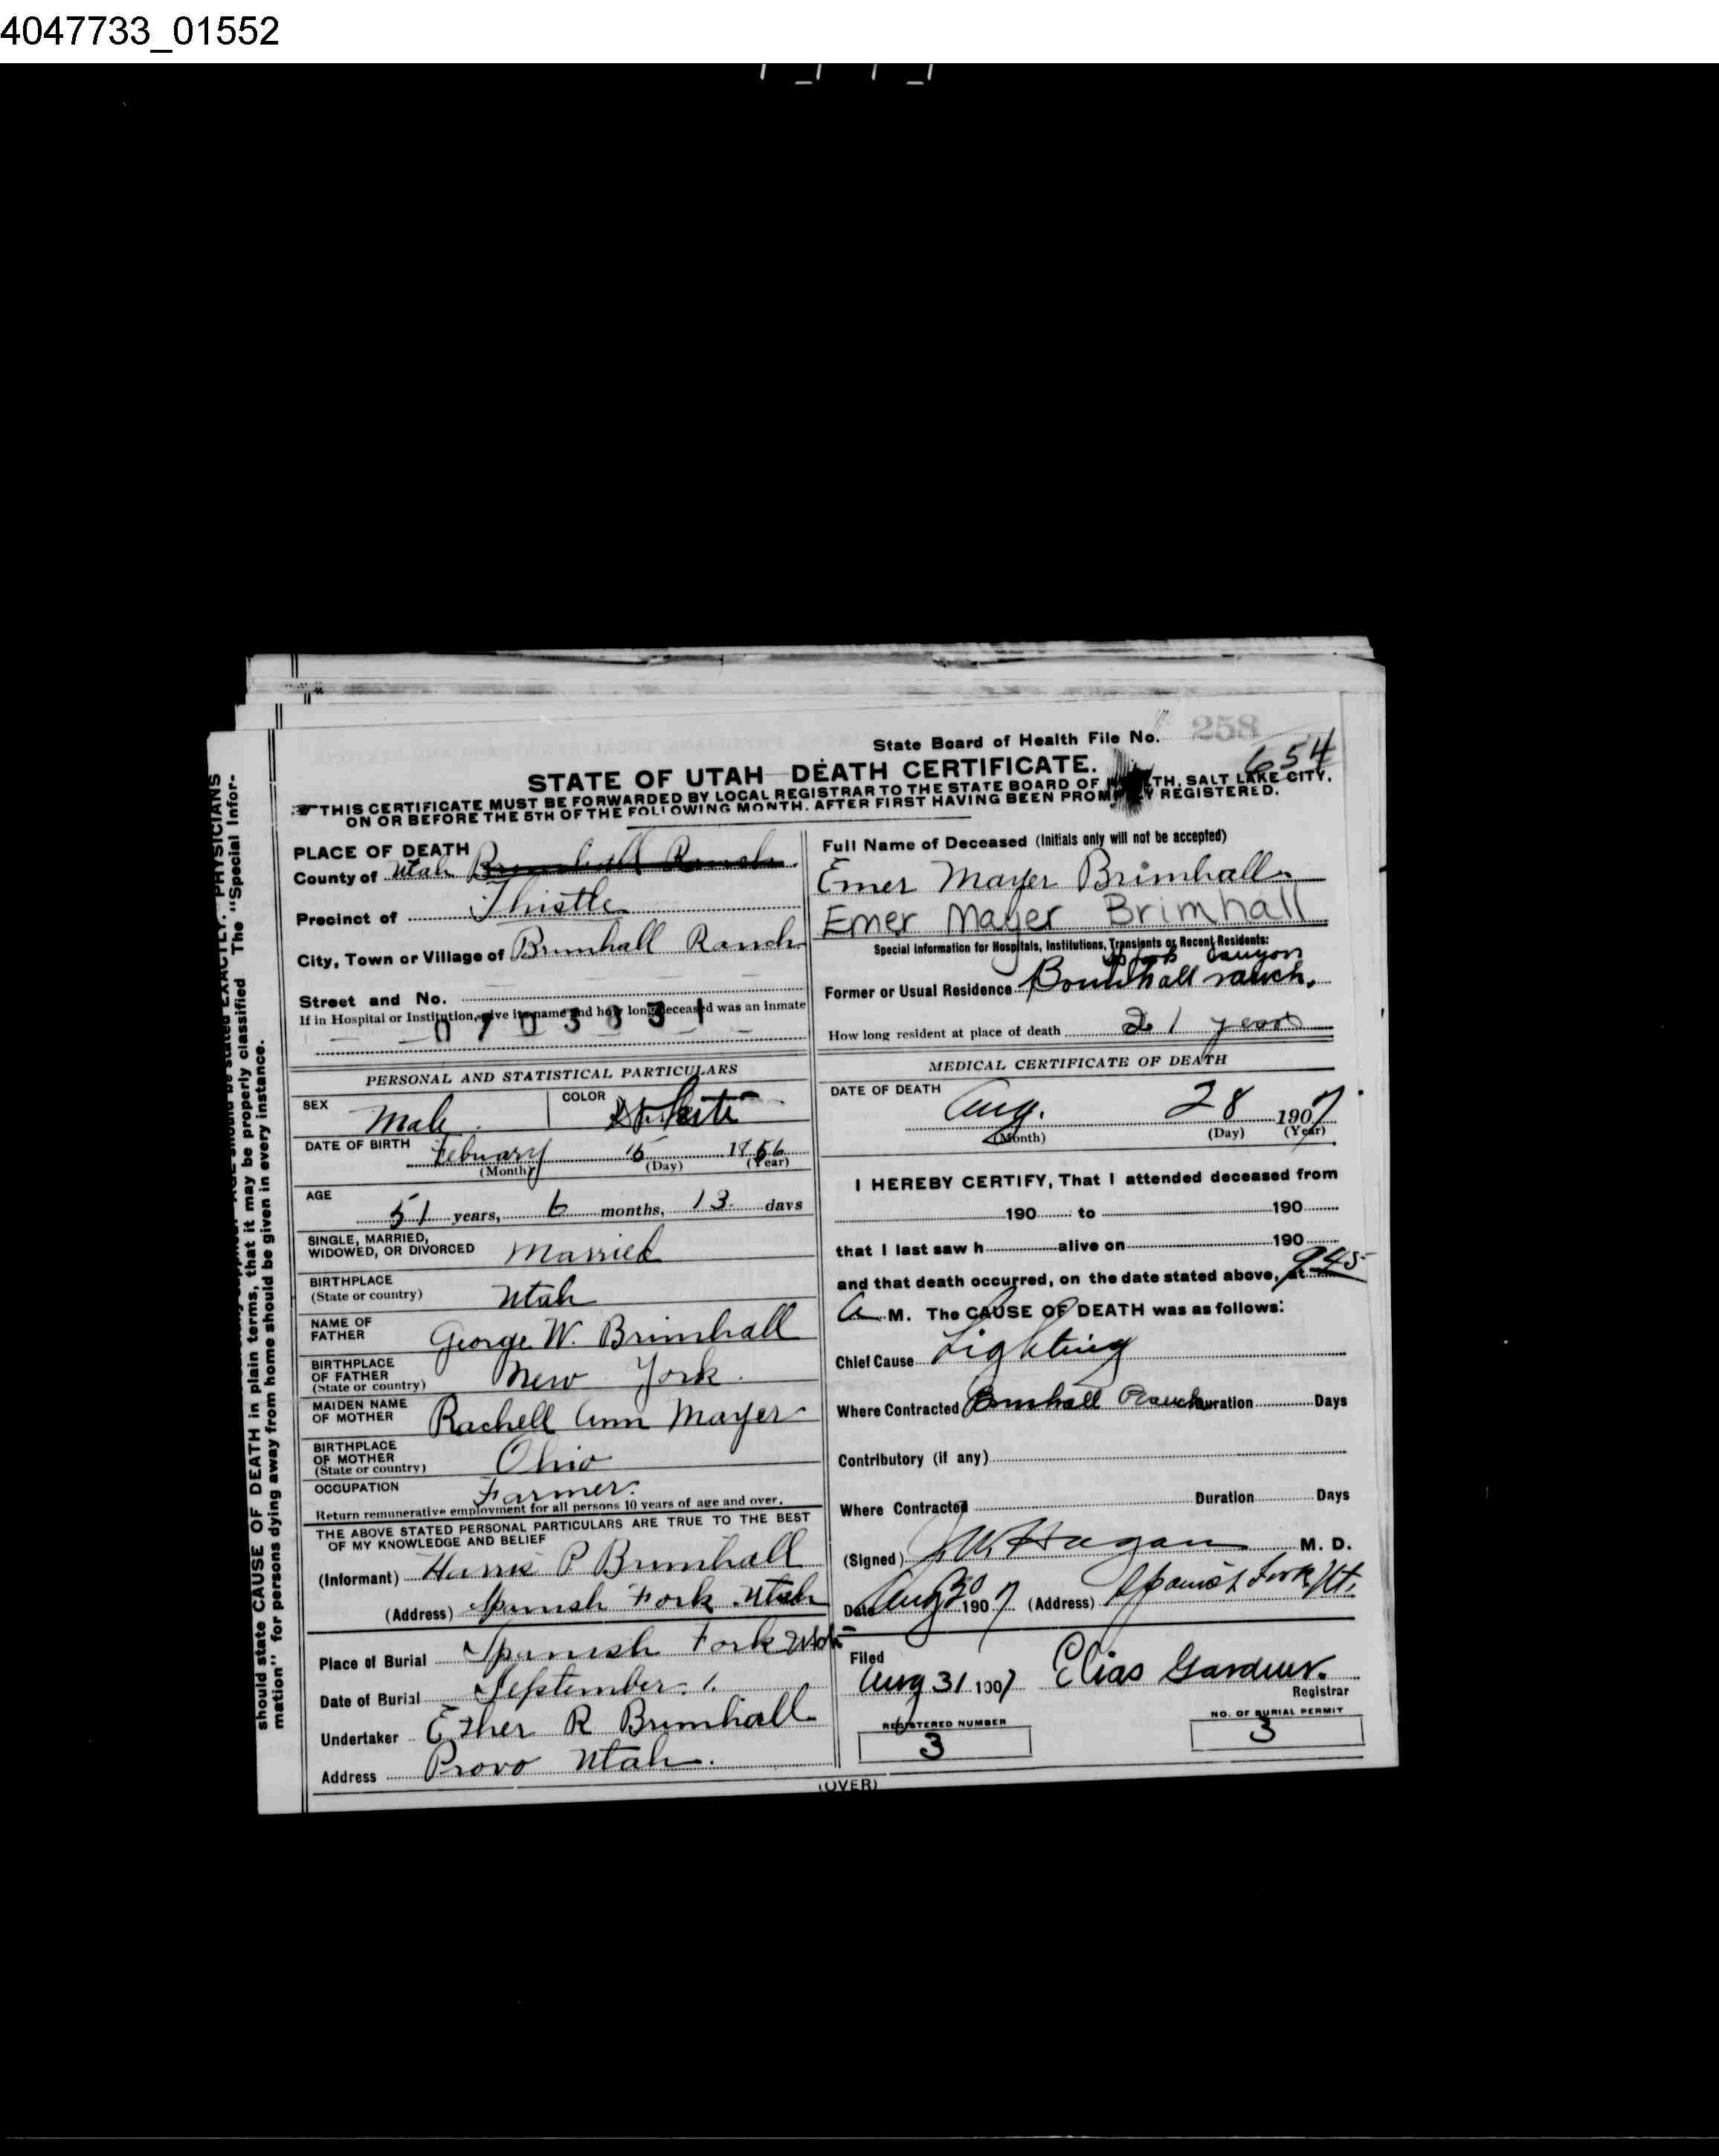 4047733_01552
State Board of Health File No. 258
654
STATE OF UTAH—DEATH CERTIFICATE.
THIS CERTIFICATE MUST BE FORWARDED BY LOCAL REGISTRAR TO THE STATE BOARD OF TH, SALT LAKE CITY,
ON OR BEFORE THE 5TH OF THE FOLLOWING MONTH, AFTER FIRST HAVING BEEN PROM Y REGISTERED.
should state CAUSE OF DEATH in plain terms, that it may be properly classified The "Special Infor-
mation" for persons dying away from home should be given in every instance.
PLACE OF DEATH
County of Utah Brimhall Ranch
Precinct of Thistle
City, Town or Village of Brimhall Ranch
Street and No.
If in Hospital or Institution, give its name and how long deceased was an inmate
PERSONAL AND STATISTICAL PARTICULARS
SEX Male COLOR White
DATE OF BIRTH February 15 1856
(Month) (Day) (Year)
AGE 51 years, 6 months, 13 days
SINGLE, MARRIED,
WIDOWED, OR DIVORCED Married
BIRTHPLACE
(State or country) Utah
NAME OF
FATHER George W. Brimhall
BIRTHPLACE
OF FATHER
(State or country) New York.
MAIDEN NAME
OF MOTHER Rachell Ann Mayer
BIRTHPLACE
OF MOTHER
(State or country) Ohio
OCCUPATION Farmer.
Return remunerative employment for all persons 10 years of age and over.
THE ABOVE STATED PERSONAL PARTICULARS ARE TRUE TO THE BEST
OF MY KNOWLEDGE AND BELIEF
(Informant) Harris P Brimhall
(Address) Spanish Fork Utah
Place of Burial Spanish Fork Utah
Date of Burial September 1.
Undertaker Ether R Brimhall
Address Provo Utah.
Full Name of Deceased (Initials only will not be accepted)
Emer Mayer Brimhall
Emer Mayer Brimhall
Special Information for Hospitals, Institutions, Transients or Recent Residents:
Canyon
Former or Usual Residence Brimhall ranch.
How long resident at place of death 21 years
MEDICAL CERTIFICATE OF DEATH
DATE OF DEATH
Aug. 28 1907
(Month) (Day) (Year)
I HEREBY CERTIFY, That I attended deceased from
190 to 190
that I last saw h alive on 190
and that death occurred, on the date stated above, at 945
A M. The CAUSE OF DEATH was as follows:
Chief Cause Lighting
Where Contracted Brimhall Ranch Duration Days
Contributory (if any)
Where Contracted Duration Days
(Signed) J.W. Hagan M. D.
Date Aug 30 1907 (Address) Spanish Fork, Ut.
Filed
Aug 31 1907 Elias Gardner.
Registrar
REGISTERED NUMBER
3
NO. OF BURIAL PERMIT
3
(OVER)